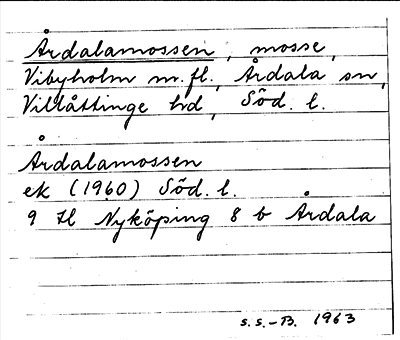 Årdalamossen, mosse,
Vibyholm m.fl., Årdala sn,
Villåttinge hd, Söd. l.
Årdalamossen
ek (1960) Söd. l.
9 H Nyköping 8 b Årdala
S.S.-B. 1963